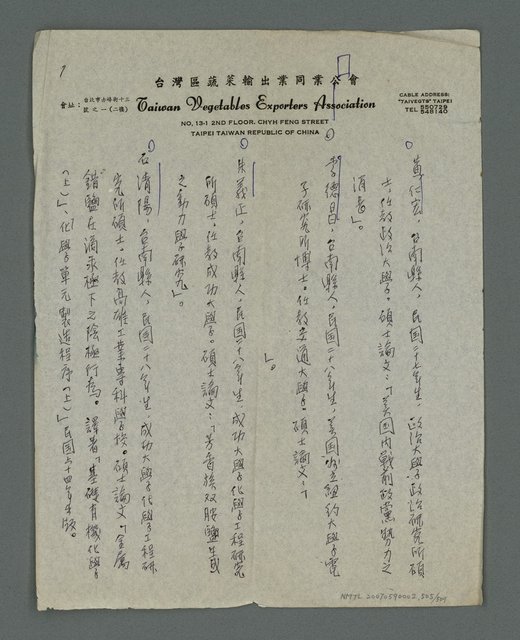 台灣區蔬菜輸出業同業公會
會址：台北市赤峰街十三號之一(二樓)
Taiwan Vegetables Exporters Association
NO. 13-1 2ND FLOOR. CHYH FENG STREET
TAIPEI TAIWAN REPUBLIC OF CHINA
CABLE ADDRESS:
"TAIVEGTS" TAIPEI
TEL 550729
548140
台南縣人，民國二十七年生，政治大學政治研究所碩
士，任教政治大學。碩士論文：「美國內戰前政黨勢力之
消長」。
李德昌，台南縣人，民國二十八年生，美國紐約大學電
子研究所博士。任教交通大學。碩士論文：「
」。
朱義正，台南縣人，民國二十八年生，成功大學化學工程研究
所碩士。任教成功大學。碩士論文：「芳香族双胺鹽生成
之動力學研究」。
石清陽，台南縣人，民國二十八年生，成功大學化學工程研
究所碩士。任教高雄工業專科學校。碩士論文「金屬
錯鹽在滴汞極下之陰極行為」。譯著「基礎有機化學
（上）」、「化學單元製造程序（上）」民國五十四年出版。
NMTL 20070590002, 505/509